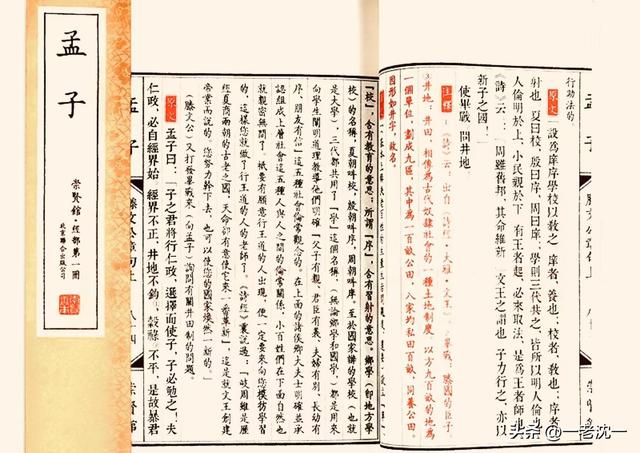 孟子
崇賢館·經部第一
北京聯合出版公司
行助法的
原文 設為庠序學校以教之 庠者、養也；校者、教也；序者、
射也。夏曰校，殷曰序，周曰庠，學則三代共之，皆所以明人倫
人倫明於上，小民親於下 有王者起，必來取法，是為王者師
《詩》云：『周雖舊邦，其命維新 』文王之謂也 子力行之，亦以
新子之國！」
使畢戰 問井地
注釋 《詩》云：出自《詩經·大雅·文王》。 畢戰：滕國的臣子。
井地：井田。相傳為古代奴隸社會的一種土地制度，以方九百畝的地為
一個單位，劃成九區，其中為一百畝公田，八家均私田百畝，同養公田。
因形如井字，故名。
『校』，含有教育的意思；所謂『序』，含有習射的意思。鄉學（即地方學
校）的名稱，夏朝叫校，殷朝叫序，周朝叫庠，至於國家辦的學校（也就
是大學），三代都共用了『學』這個名稱。（無論鄉學和國學，）都是用來
向學生闡明道理教導他們明確『父子有親，君臣有義，夫婦有別，長幼有
序，朋友有信』這五種社會倫常觀念的。在上面的諸侯卿大夫士明確並承
認組成上層社會這五種人與人之間的倫常關係，小百姓們在下面自然也
就親密無間了。祇要有願意行王道的人出現，便一定要向您模仿學習，
這樣您就做了行王道的人的老師了。《詩經》裏說過：『岐周雖是歷
經夏商兩朝的古老之國，天命卻有意使它來一番革新』，這是就文王創建
帝業而說的。您努力幹下去，也可以使您的國家煥然一新的。」
（滕文公）又打發畢戰來（向孟子）詢問有關井田制的問題。
原文 孟子曰：「子之君將行仁政，選擇而使子，子必勉之！夫
仁政，必自經界始。經界不正，井地不鈞，穀祿不平，是故暴君
孟子
滕文公章句上
八十四
崇賢館
头条@一老沈一